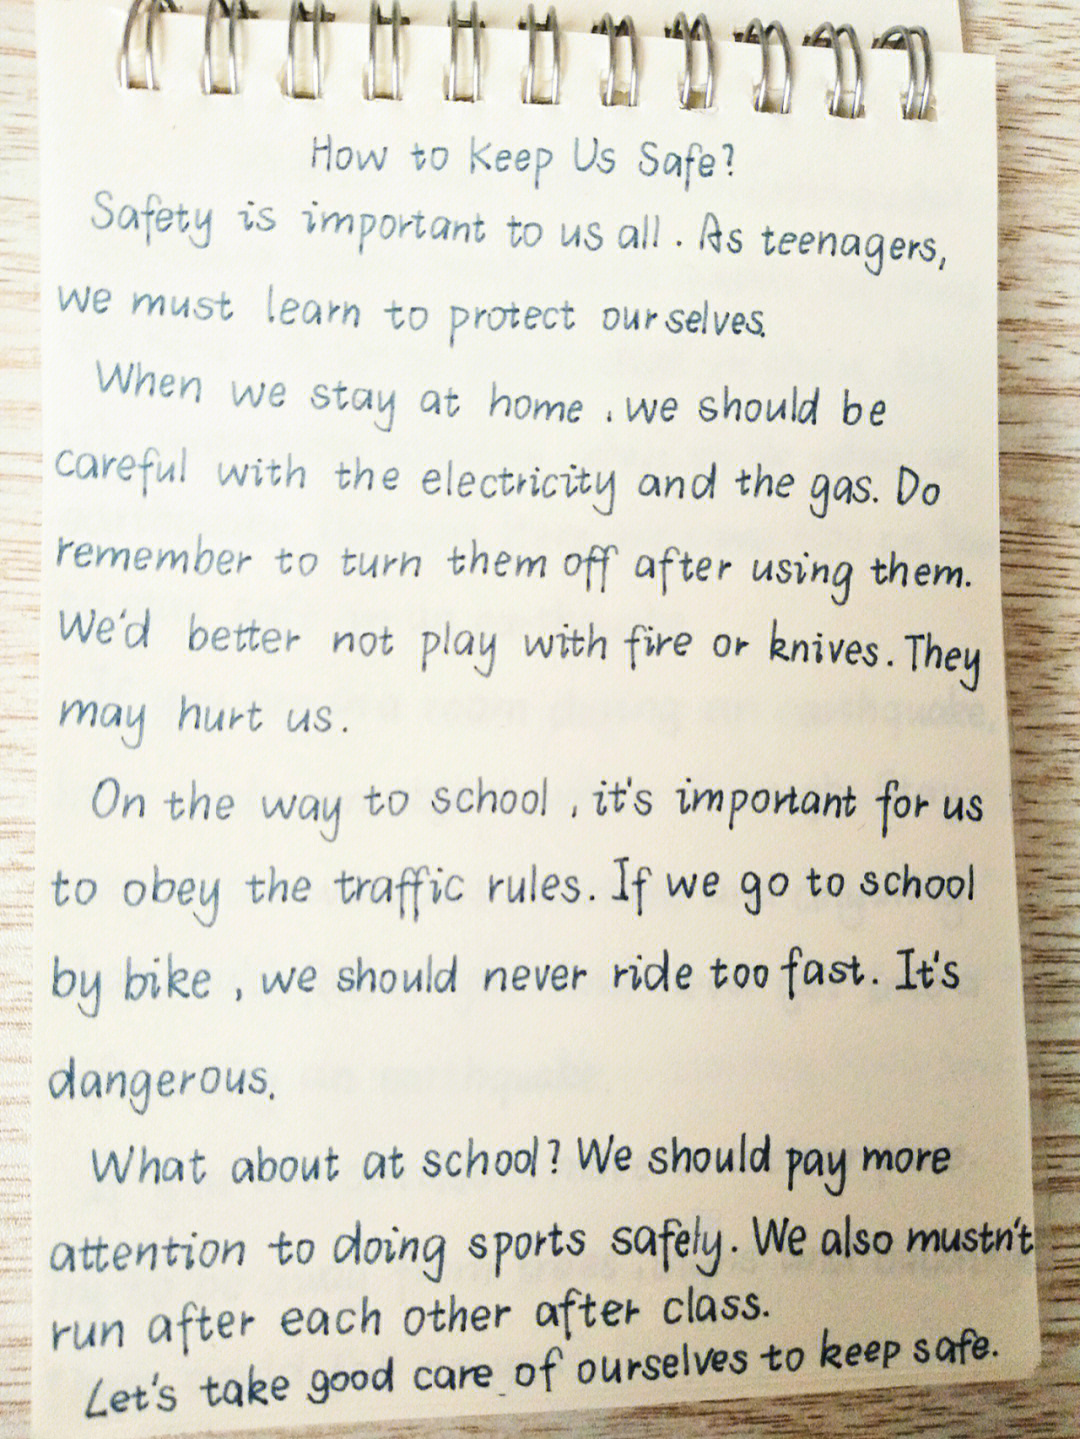 How to Keep Us Safe?
Safety is important to us all. As teenagers,
we must learn to protect ourselves.
When we stay at home, we should be
careful with the electricity and the gas. Do
remember to turn them off after using them.
We'd better not play with fire or knives. They
may hurt us.
On the way to school, it's important for us
to obey the traffic rules. If we go to school
by bike, we should never ride too fast. It's
dangerous.
What about at school? We should pay more
attention to doing sports safely. We also mustn't
run after each other after class.
Let's take good care of ourselves to keep safe.